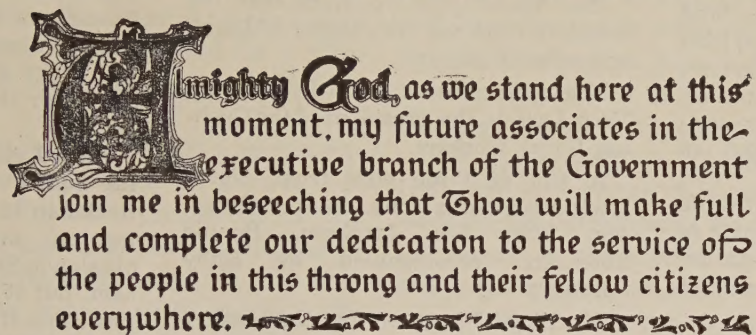 Almighty God, as we stand here at this
moment, my future associates in the
executive branch of the Government
join me in beseeching that Thou will make full
and complete our dedication to the service of
the people in this throng and their fellow citizens
everywhere.